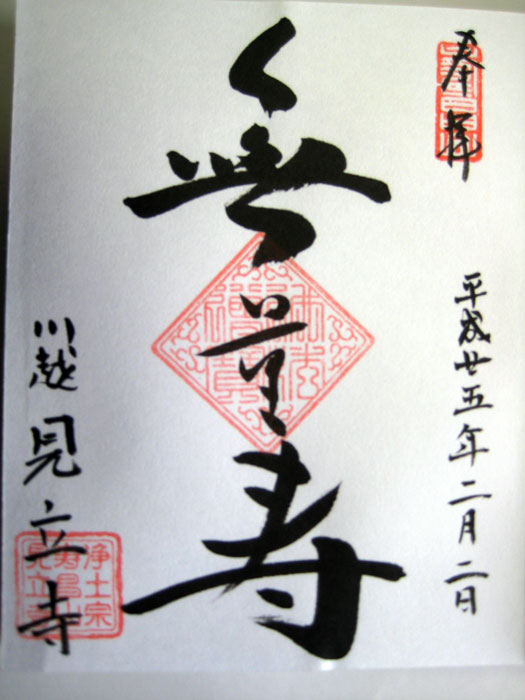 奉拝
平成廿五年二月二日
無量寿
川越 見立寺
浄土宗
寿昌山
見立寺